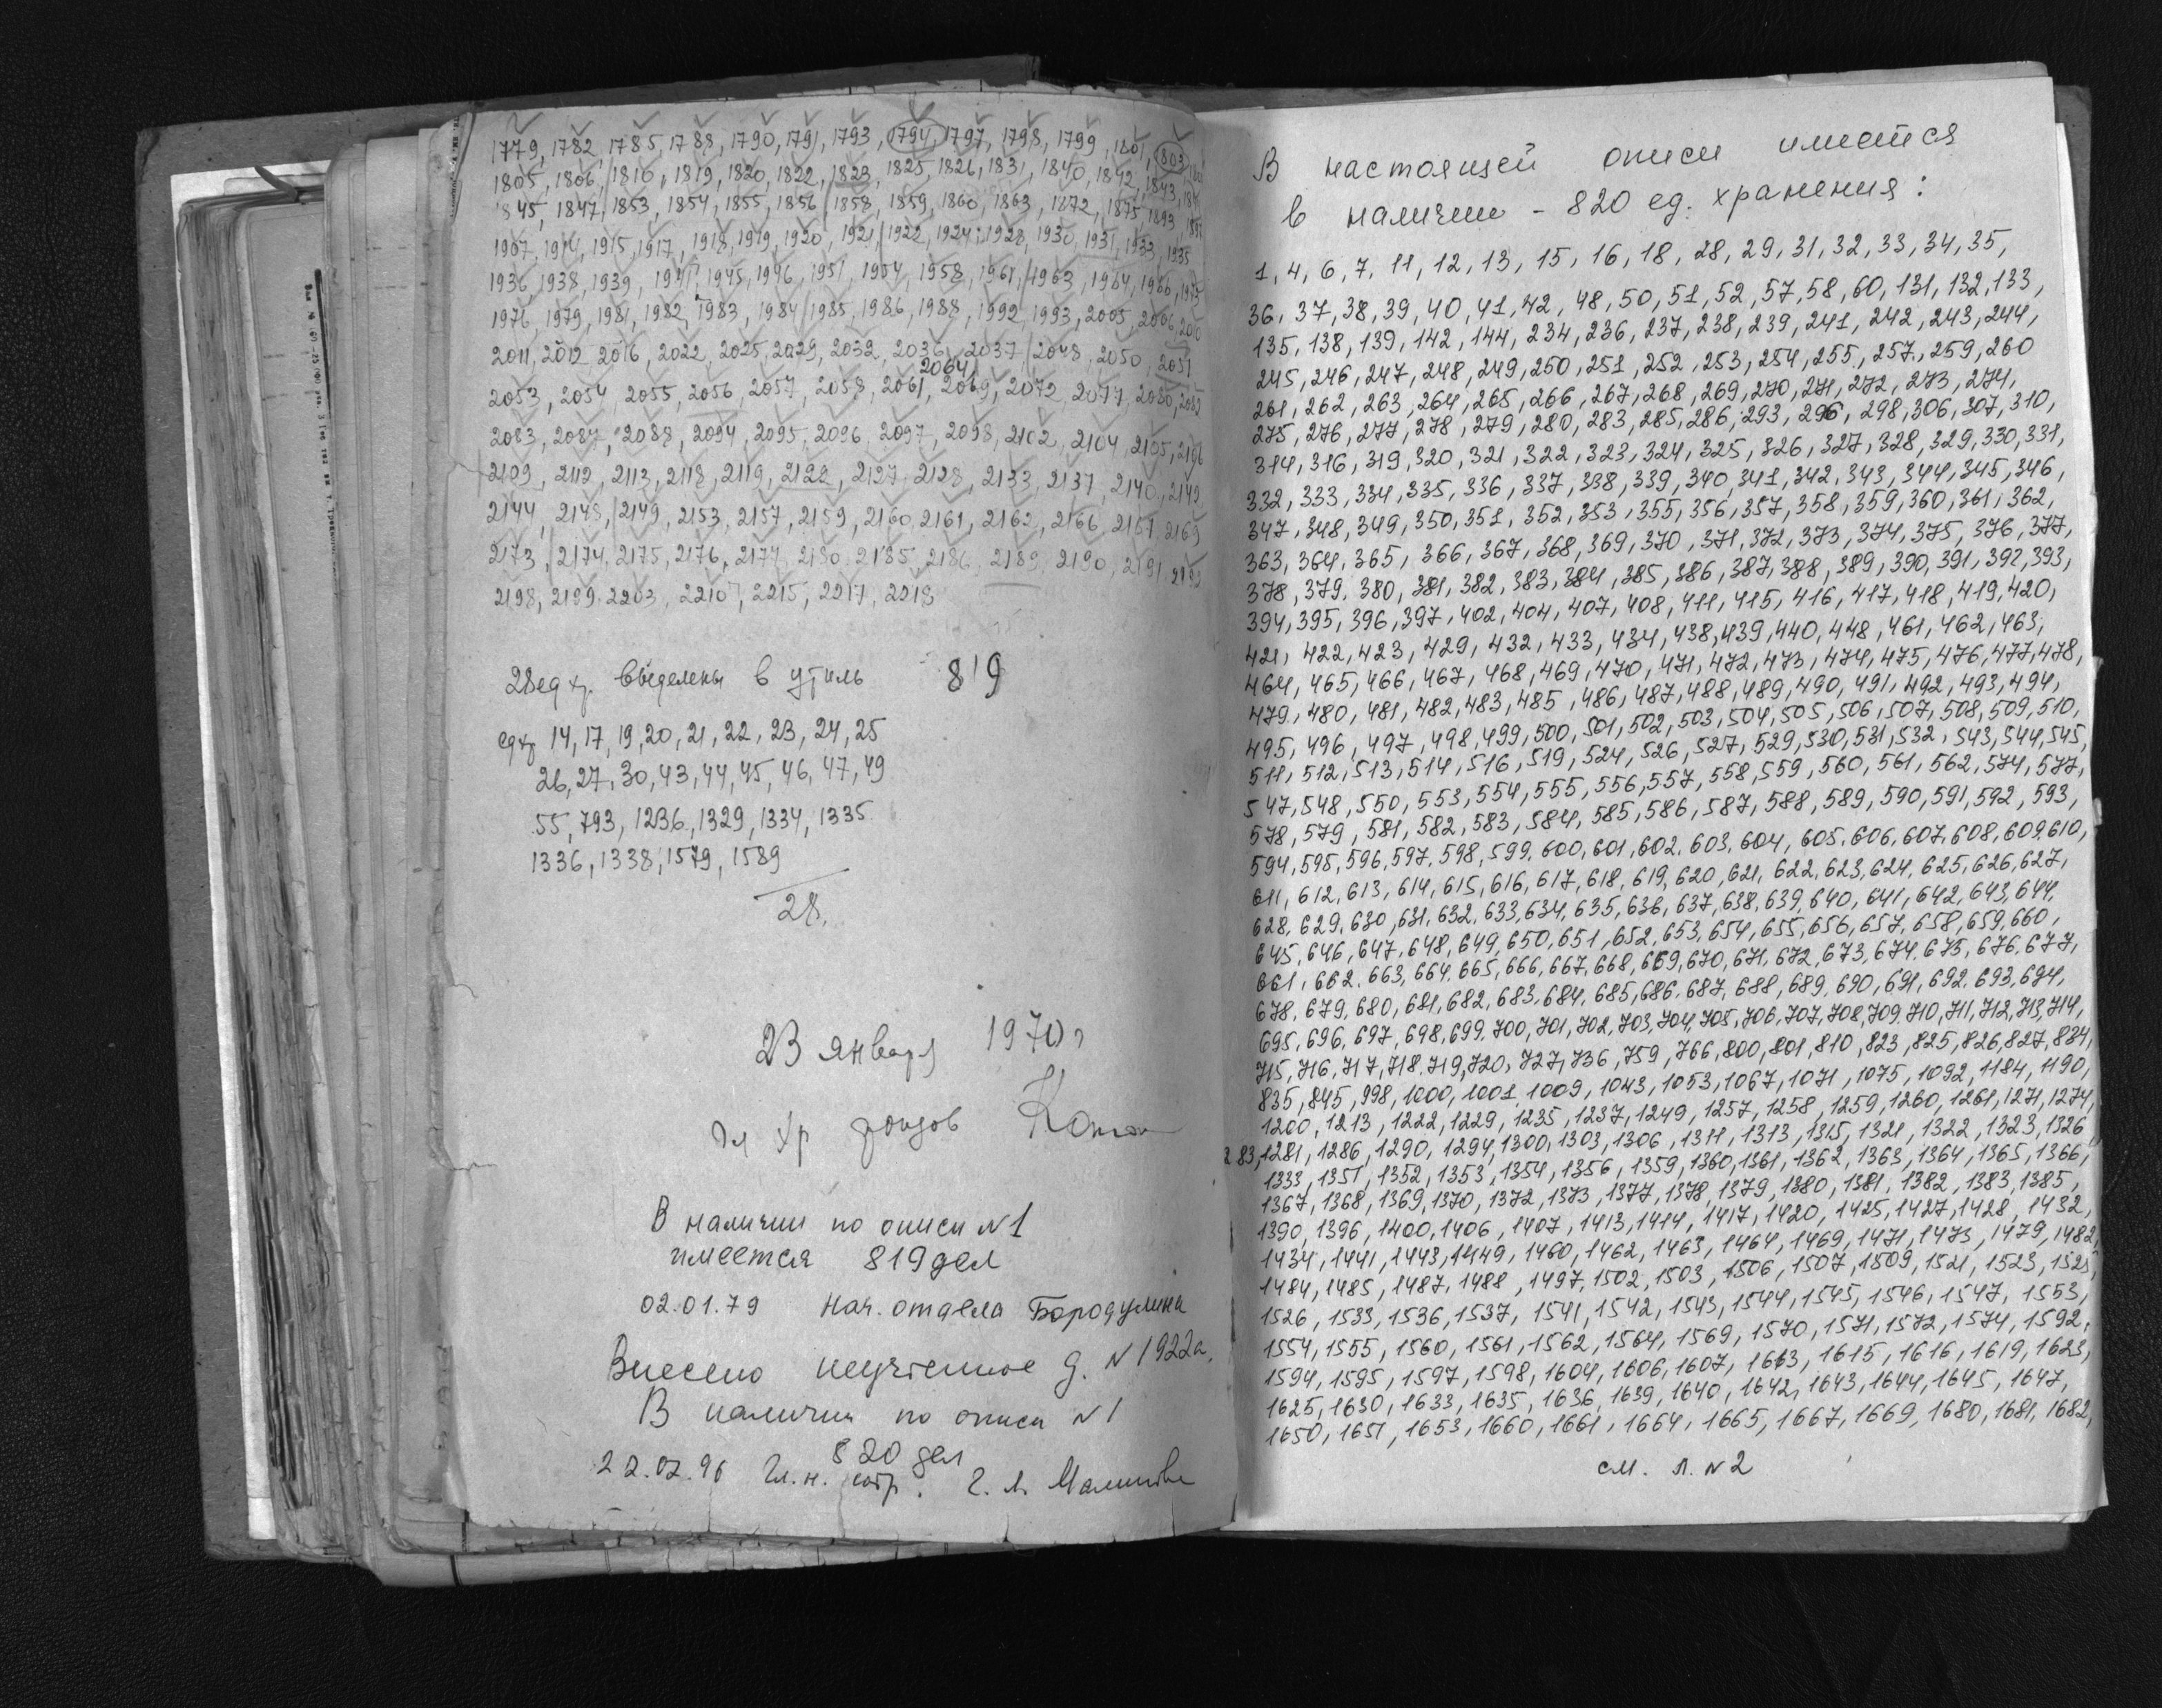 1779, 1782, 1785, 1788, 1790, 1791, 1793, 1794, 1797, 1798, 1799, 1801, 1803
1805, 1806, 1816, 1819, 1820, 1822, 1823, 1825, 1826, 1831, 1840, 1842, 1843
1845, 1847, 1853, 1854, 1855, 1856, 1858, 1859, 1860, 1863, 1872, 1875, 1893
1907, 1914, 1915, 1917, 1918, 1919, 1920, 1921, 1922, 1924, 1928, 1930, 1931, 1933, 1935
1936, 1938, 1939, 1941, 1945, 1946, 1951, 1954, 1958, 1961, 1963, 1964, 1966, 1975
1976, 1979, 1981, 1982, 1983, 1984, 1985, 1986, 1988, 1992, 1993, 2005, 2006, 2010
2011, 2012, 2016, 2022, 2025, 2029, 2032, 2036, 2037, 2048, 2050, 2051
2064
2053, 2054, 2055, 2056, 2057, 2058, 2061, 2069, 2072, 2077, 2080, 2082
2083, 2087, 2088, 2094, 2095, 2096, 2097, 2098, 2102, 2104, 2105, 2106
2109, 2112, 2113, 2118, 2119, 2122, 2127, 2128, 2133, 2137, 2140, 2142
2144, 2148, 2149, 2153, 2157, 2159, 2160, 2161, 2162, 2166, 2167, 2169
2173, 2174, 2175, 2176, 2177, 2180, 2185, 2186, 2189, 2190, 2191
2198, 2199, 2203, 2210, 2215, 2217, 2218
28 ед хр. выделены в утиль 819
ед хр 14, 17, 19, 20, 21, 22, 23, 24, 25
26, 27, 30, 43, 44, 45, 46, 47, 49
55, 793, 1236, 1329, 1334, 1335
1336, 1338, 1579, 1589
28.
23 января 1970 г
Гл хр фондов
В наличии по описи N 1
имеется 819 дел
02.01.79 Нач. отдела Бородулина
Внесено неучтенное д. N 1922а.
В наличии по описи N 1
820 дел
22.02.96 Гл. н. сотр.
В настоящей описи имеется
в наличии - 820 ед. хранения:
1, 4, 6, 7, 11, 12, 13, 15, 16, 18, 28, 29, 31, 32, 33, 34, 35,
36, 37, 38, 39, 40, 41, 42, 48, 50, 51, 52, 57, 58, 60, 131, 132, 133,
135, 138, 139, 142, 144, 234, 236, 237, 238, 239, 241, 242, 243, 244,
245, 246, 247, 248, 249, 250, 251, 252, 253, 254, 255, 257, 259, 260
261, 262, 263, 264, 265, 266, 267, 268, 269, 270, 271, 272, 273, 274,
275, 276, 277, 278, 279, 280, 283, 285, 286, 293, 296, 298, 306, 307, 310,
314, 316, 319, 320, 321, 322, 323, 324, 325, 326, 327, 328, 329, 330, 331,
332, 333, 334, 335, 336, 337, 338, 339, 340, 341, 342, 343, 344, 345, 346,
347, 348, 349, 350, 351, 352, 353, 355, 356, 357, 358, 359, 360, 361, 362,
363, 364, 365, 366, 367, 368, 369, 370, 371, 372, 373, 374, 375, 376, 377,
378, 379, 380, 381, 382, 383, 384, 385, 386, 387, 388, 389, 390, 391, 392, 393,
394, 395, 396, 397, 402, 404, 407, 408, 411, 415, 416, 417, 418, 419, 420,
421, 422, 423, 429, 432, 433, 434, 438, 439, 440, 448, 461, 462, 463,
464, 465, 466, 467, 468, 469, 470, 471, 472, 473, 474, 475, 476, 477, 478,
479, 480, 481, 482, 483, 485, 486, 487, 488, 489, 490, 491, 492, 493, 494,
495, 496, 497, 498, 499, 500, 501, 502, 503, 504, 505, 506, 507, 508, 509, 510,
511, 512, 513, 514, 516, 519, 524, 526, 527, 529, 530, 531, 532, 543, 544, 545,
547, 548, 550, 553, 554, 555, 556, 557, 558, 559, 560, 561, 562, 574, 577,
578, 579, 581, 582, 583, 584, 585, 586, 587, 588, 589, 590, 591, 592, 593,
594, 595, 596, 597, 598, 599, 600, 601, 602, 603, 604, 605, 606, 607, 608, 609, 610,
611, 612, 613, 614, 615, 616, 617, 618, 619, 620, 621, 622, 623, 624, 625, 626, 627,
628, 629, 630, 631, 632, 633, 634, 635, 636, 637, 638, 639, 640, 641, 642, 643, 644,
645, 646, 647, 648, 649, 650, 651, 652, 653, 654, 655, 656, 657, 658, 659, 660,
661, 662, 663, 664, 665, 666, 667, 668, 669, 670, 671, 672, 673, 674, 675, 676, 677,
678, 679, 680, 681, 682, 683, 684, 685, 686, 687, 688, 689, 690, 691, 692, 693, 694,
695, 696, 697, 698, 699, 700, 701, 702, 703, 704, 705, 706, 707, 708, 709, 710, 711, 712, 713, 714,
715, 716, 717, 718, 719, 720, 727, 736, 759, 766, 800, 801, 810, 823, 825, 826, 827, 834,
835, 845, 998, 1000, 1001, 1009, 1043, 1053, 1067, 1071, 1075, 1092, 1184, 1190,
1200, 1213, 1222, 1229, 1235, 1237, 1249, 1257, 1258, 1259, 1260, 1261, 1271, 1274,
1283, 1281, 1286, 1290, 1294, 1300, 1303, 1306, 1311, 1313, 1315, 1321, 1322, 1323, 1326,
1333, 1351, 1352, 1353, 1354, 1356, 1359, 1360, 1361, 1362, 1363, 1364, 1365, 1366,
1367, 1368, 1369, 1370, 1372, 1373, 1377, 1378, 1379, 1380, 1381, 1382, 1383, 1385,
1390, 1396, 1400, 1406, 1407, 1413, 1414, 1417, 1420, 1425, 1427, 1428, 1432,
1434, 1441, 1443, 1449, 1460, 1462, 1463, 1464, 1469, 1471, 1473, 1479, 1482,
1484, 1485, 1487, 1488, 1497, 1502, 1503, 1506, 1507, 1509, 1521, 1523, 1525,
1526, 1533, 1536, 1537, 1541, 1542, 1543, 1544, 1545, 1546, 1547, 1553,
1554, 1555, 1560, 1561, 1562, 1564, 1569, 1570, 1571, 1572, 1574, 1592,
1594, 1595, 1597, 1598, 1604, 1606, 1607, 1613, 1615, 1616, 1619, 1623,
1625, 1630, 1633, 1635, 1636, 1639, 1640, 1642, 1643, 1644, 1645, 1647,
1650, 1651, 1653, 1660, 1661, 1664, 1665, 1667, 1669, 1680, 1681, 1682,
см. л. N 2